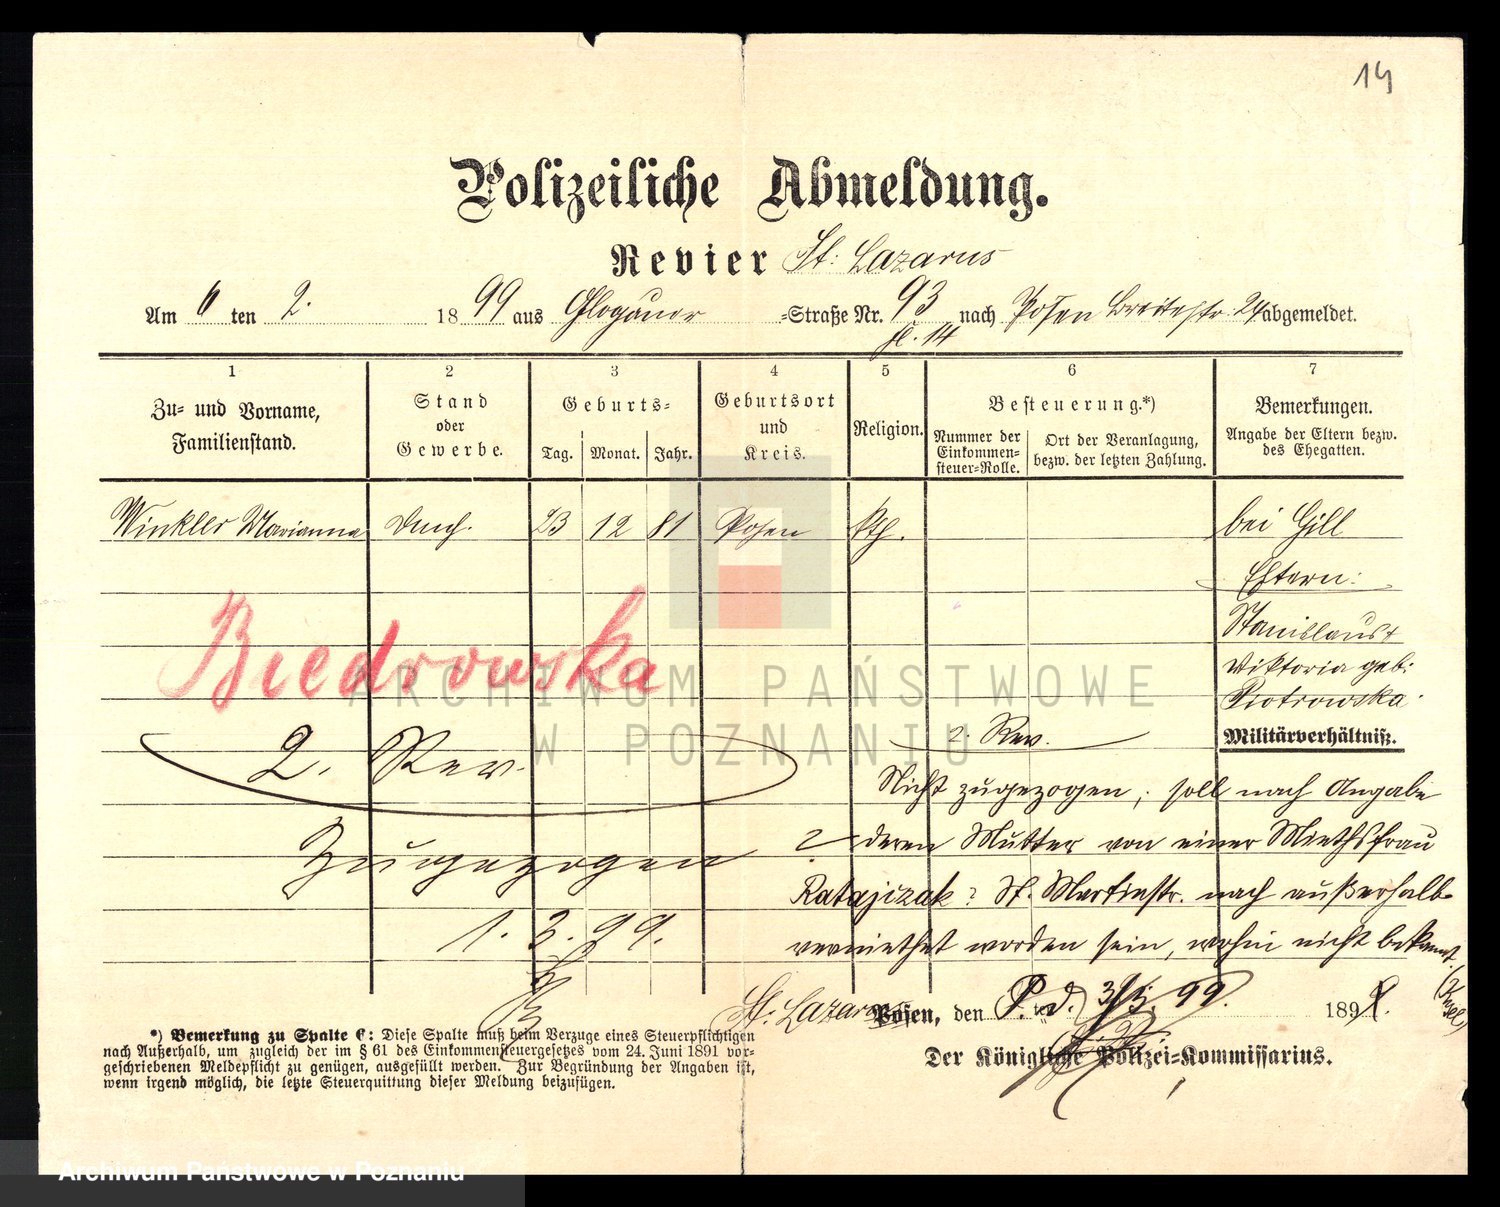 14
Polizeiliche Abmeldung.
Revier St: Lazarus
Am 6 ten 2. 1899 aus Glogauer =Straße Nr. 93 nach Posen Breitestr. 24 abgemeldet.
fl. 14
1 2 3 4 5 6 7
Zu= und Vorname, Familienstand.
Stand oder Gewerbe.
Geburts= Tag. Monat. Jahr.
Geburtsort und Kreis.
Religion.
Besteuerung.*)
Nummer der Einkommen=steuer=Rolle.
Ort der Veranlagung, bezw. der letzten Zahlung.
Bemerkungen.
Angabe der Eltern bezw. des Ehegatten.
Winkler Marianna 12 81 Posen kth. bei Gill
Eltern:
Stanislaus +
Viktoria geb:
Piotrowska.
Biedrowska
Militärverhältniß.
2. Rev.
2. Rev.
Nicht zugezogen, soll nach Angabe
deren Mutter von einer Miethsfrau
Zugezogen
Ratajczak? St. Martinstr. nach außerhalb
1. 3. 99.
vermiethet worden sein, wohin nicht bekannt.
St: Lazarus
Posen, den P. d. 3/3. 99. 189
Der Königliche Polizei=Kommissarius.
*) Bemerkung zu Spalte 6: Diese Spalte muß beim Verzuge eines Steuerpflichtigen
nach Außerhalb, um zugleich der im § 61 des Einkommensteuergesetzes vom 24. Juni 1891 vor=
geschriebenen Meldepflicht zu genügen, ausgefüllt werden. Zur Begründung der Angaben ist,
wenn irgend möglich, die letzte Steuerquittung dieser Meldung beizufügen.
ARCHIWUM PAŃSTWOWE
W POZNANIU
Archiwum Państwowe w Poznaniu